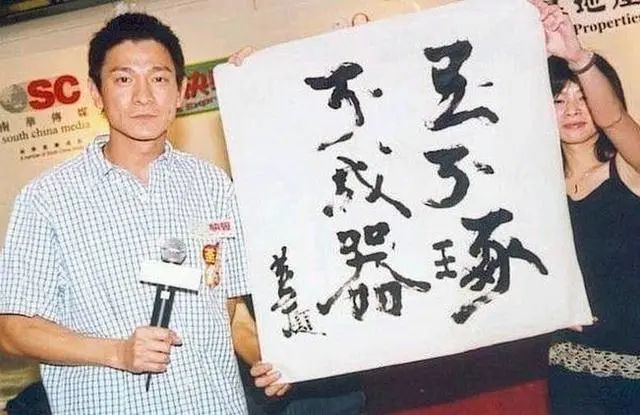 SC
南華傳媒
south china media
地產
Properties
快報
玉不琢
不成器